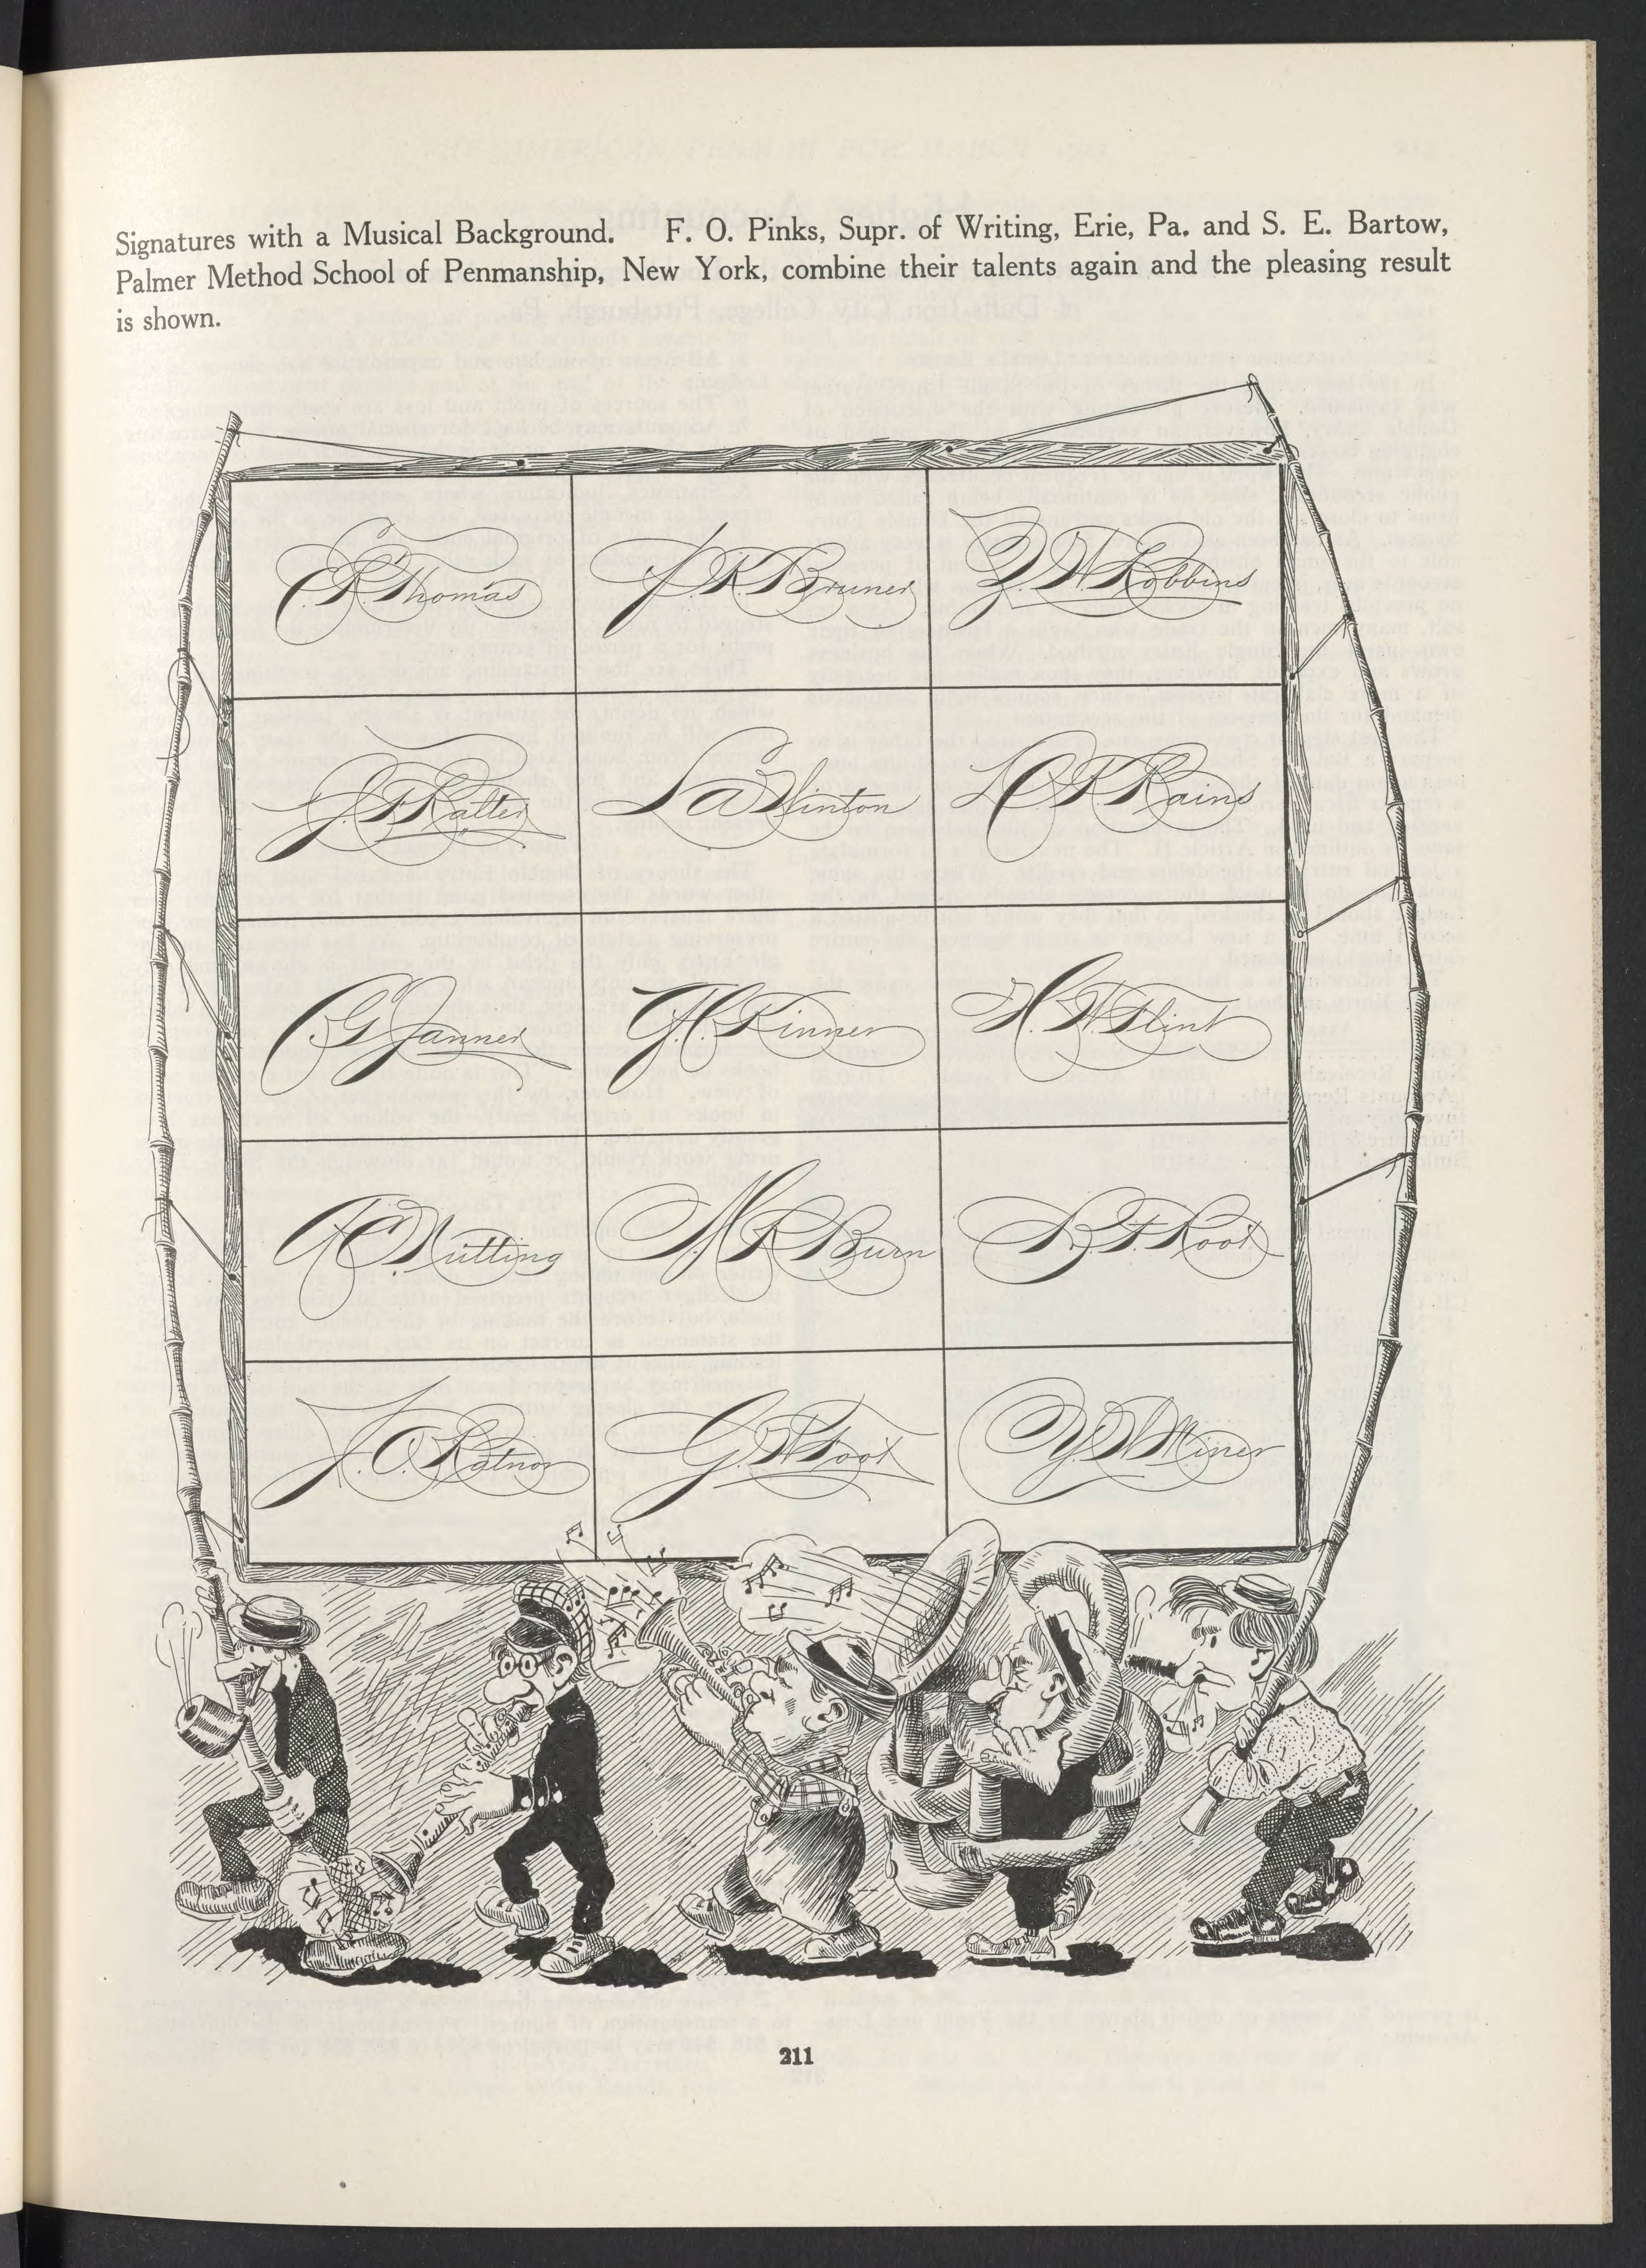 Signatures with a Musical Background. F. O. Pinks, Supr. of Writing, Erie, Pa. and S. E. Bartow,
Palmer Method School of Penmanship, New York, combine their talents again and the pleasing result
is shown.
Thomas
J. K. Bruner
W. Robbins
Salter
L A Vinton
Rains
Janner
Kinner
H. W. Flint
Nutting
M R Burn
Root
J. O. Ratnor
G. W. Foot
Y. W. Miner
211